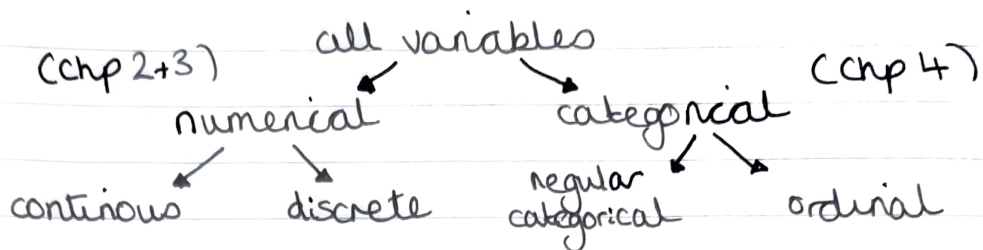 all variables
(Chp 2+3) (Chp 4)
numerical categorical
continous discrete regular categorical ordinal